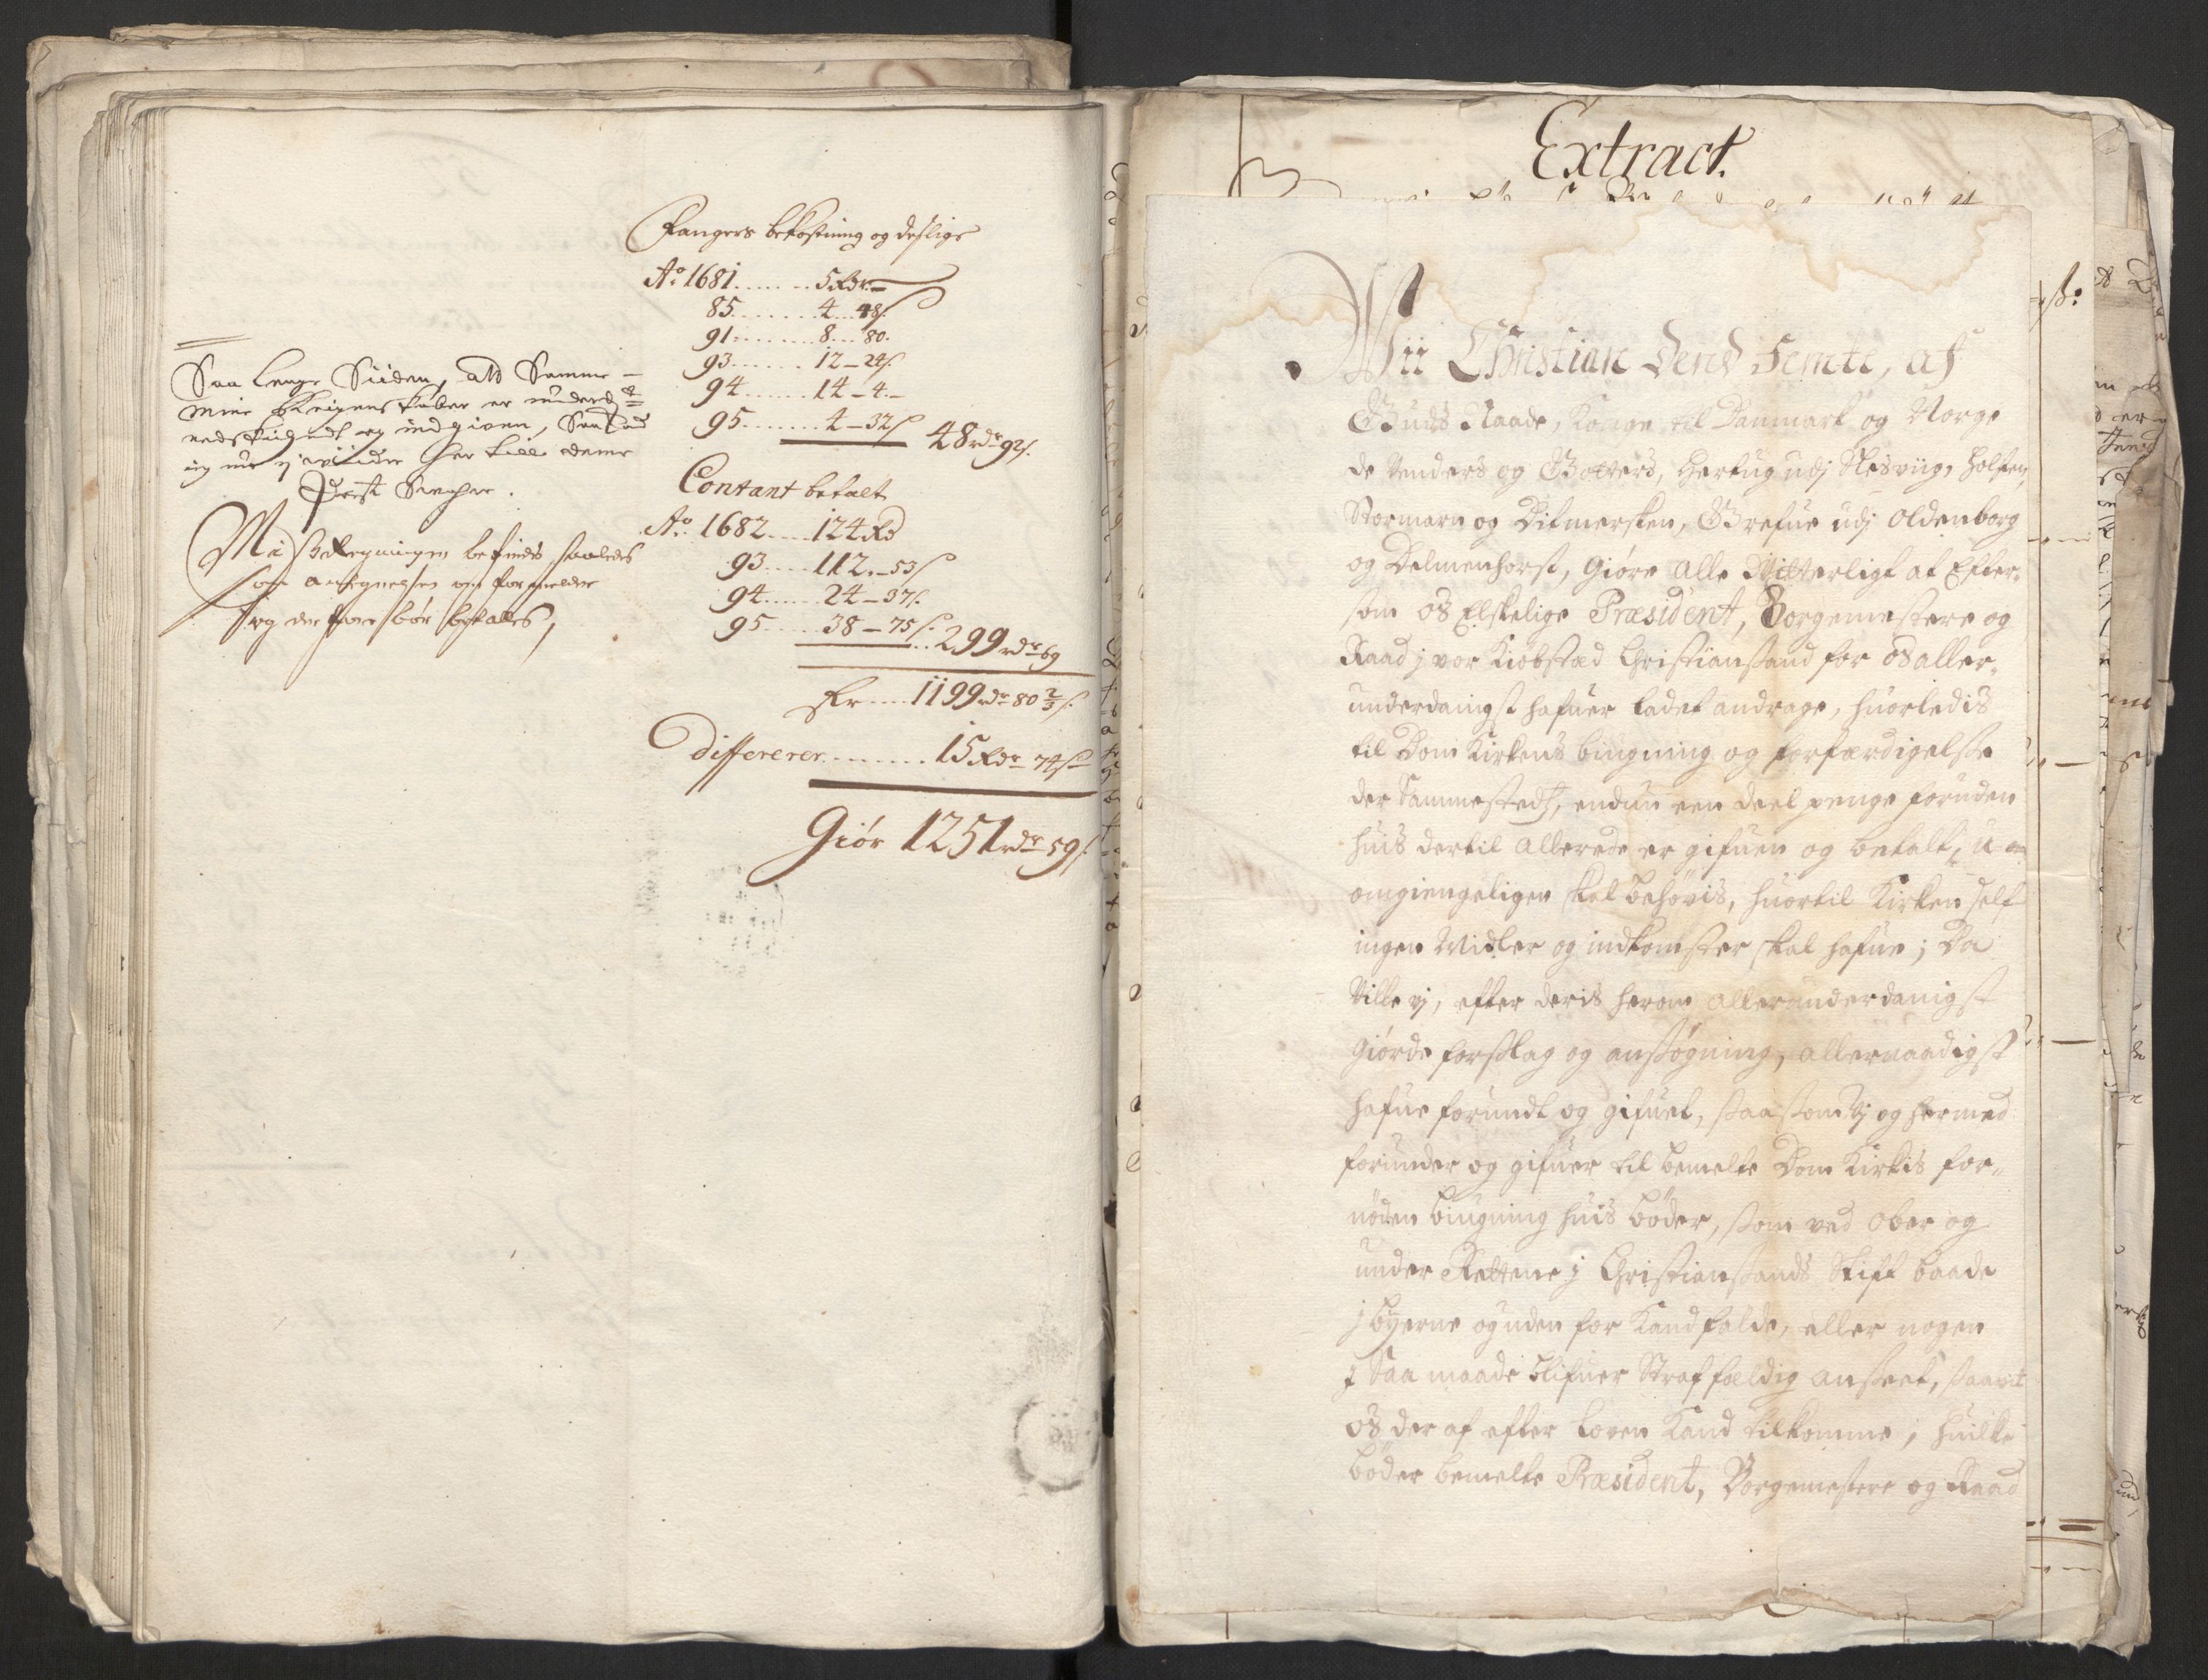 Fangers bekostning og deslige
Ao 1681 ....... 5 Rdr. —
85 ........ 4 .... 48 s.
91 ........ 8 .... 80.
93 ....... 12 — 24 s.
94 ....... 14 — 4. —
95 ........ 4 — 32 s
48 rdr 92 s.
Contant betalt
Ao. 1682 .... 124 Rd
93 ..... 112. — 53 s
94 ...... 24 — 37 s.
95 ..... 38 — 75 s. .. 299 rdr 69
Er .... 1199 rdr 80 2/3 s.
Differerer ........ 15 Rdr 74 s
Giör 1251 rdr 59 s.
Saa lenge Siiden, at Samme
mine er
og indgiven, Saa
ieg nu ej her till denne
Post Svarer.
Mis Regningen befindes saaledes
som antegnelsen om formelder
og derfore bør betalles,
Extract.
Wii Christian dend Femte, af
Guds Naade, Konge til Danmark og Norge
de Venders og Gotters, Hertug udj Slesviig, Holsten,
Stormarn og Ditmersken, Grefue udj Oldenborg
og Delmenhorst, Giöre Alle Vitterligt at Efter-
som os Elskelige Præsident, Borgemestere og
Raad j vor Kiöbstæd Christiansand for os aller-
underdanigst hafuer ladet andrage, huorledis
til Dom Kirkens bÿgning og forfærdigelse
der Sammesteds, endnu een deel penge foruden
huis dertil Allerede er gifuen og betalt, U-
omgiengeligen skal behövis, huortil Kirken self
ingen Midler og indkomster skal hafue; Da
Ville vj, efter deris herom allerunderdanigst
giörde forslag og ansögning, allernaadigst
hafue forundt og gifuet, saasom Vj og hermed
forunder og gifuer til bemelte Dom Kirkis for-
nöden bÿgning huis böder, som ved Ober og
under Retterne j Christiansands Stift baade
j byerne og uden for Kand falde, eller nogen
j Saa maade blifuer Straffældig anseet, saavit
os der af efter loven Kand tilkomme; huilke
böder bemelte Præsident, Borgemestere og Raad